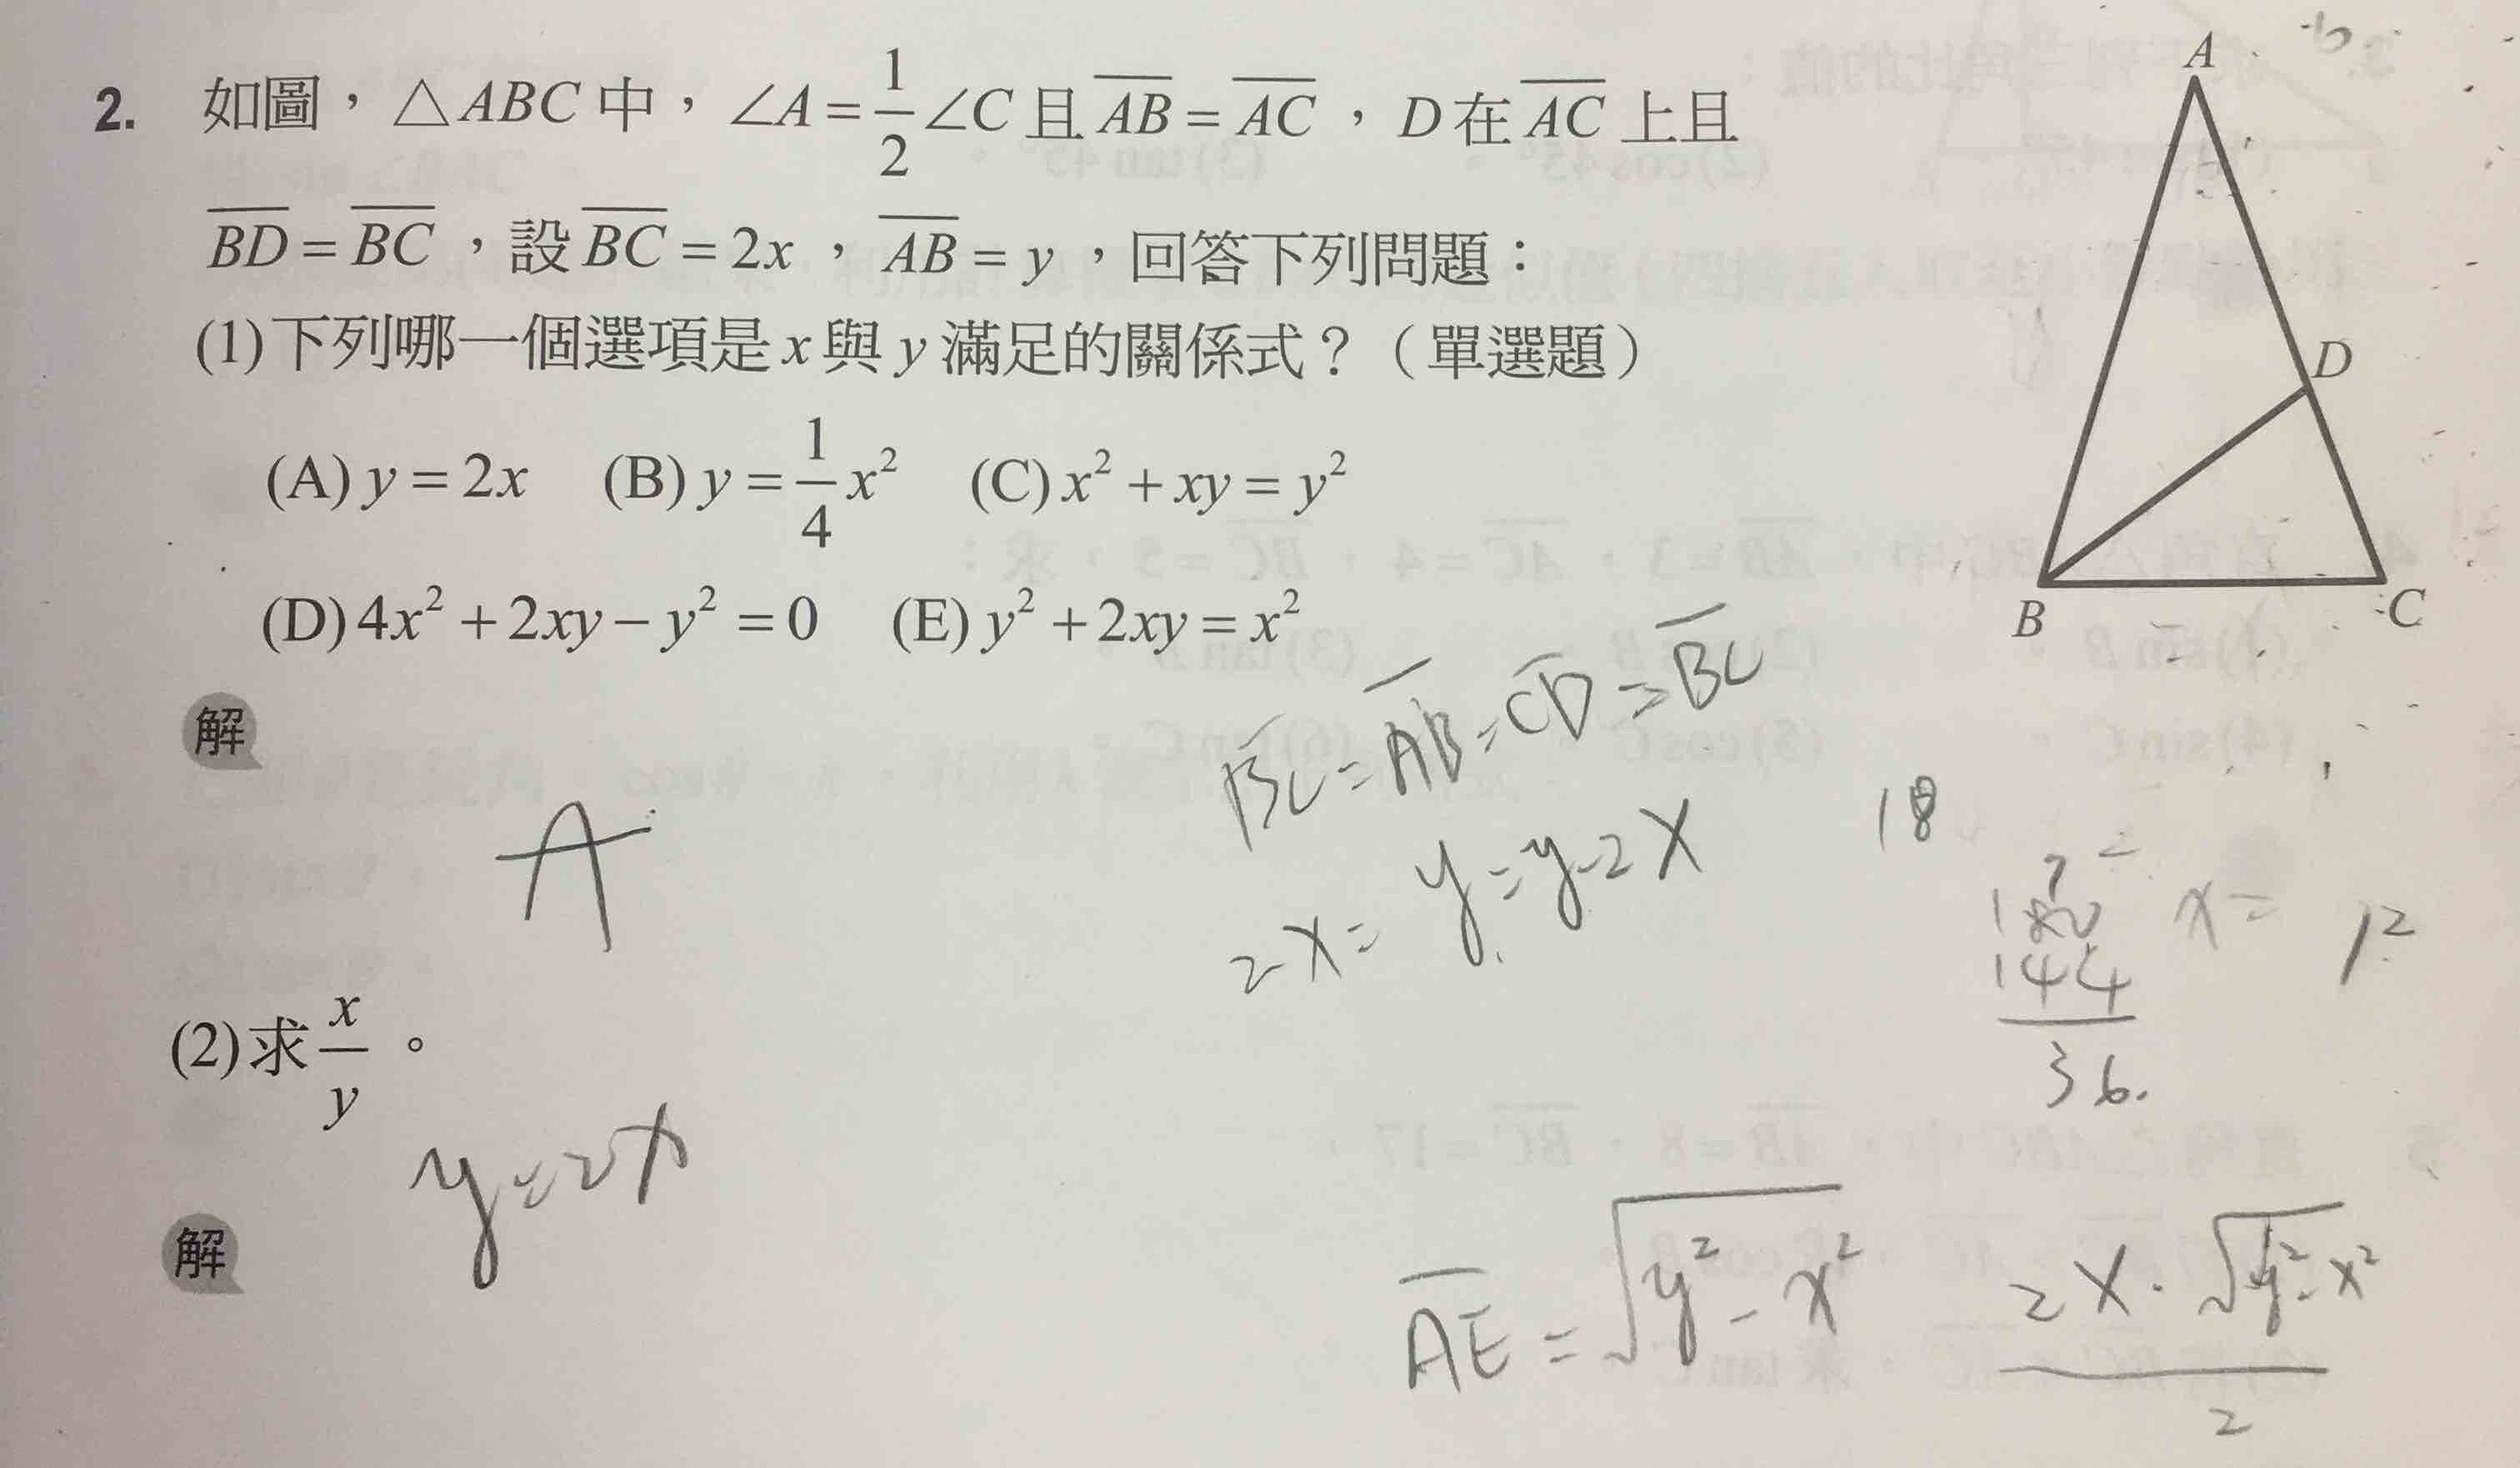 2. 如圖，△ABC 中，∠A = 1/2 ∠C 且 \overline{AB} = \overline{AC}，D 在 \overline{AC} 上且
\overline{BD} = \overline{BC}，設 \overline{BC} = 2x，\overline{AB} = y，回答下列問題：
(1)下列哪一個選項是 x 與 y 滿足的關係式？（單選題）
(A) y = 2x (B) y = 1/4 x² (C) x² + xy = y²
(D) 4x² + 2xy − y² = 0 (E) y² + 2xy = x²
A
D
B
C
解
A
\overline{BC} = \overline{AB} = \overline{CD} = \overline{BC}
2x = y = y-2x
18
180
144
36.
x = 12
(2)求 x/y 。
解
y = 2x
\overline{AE} = √(y² − x²)
2x · √(y² - x²)
2